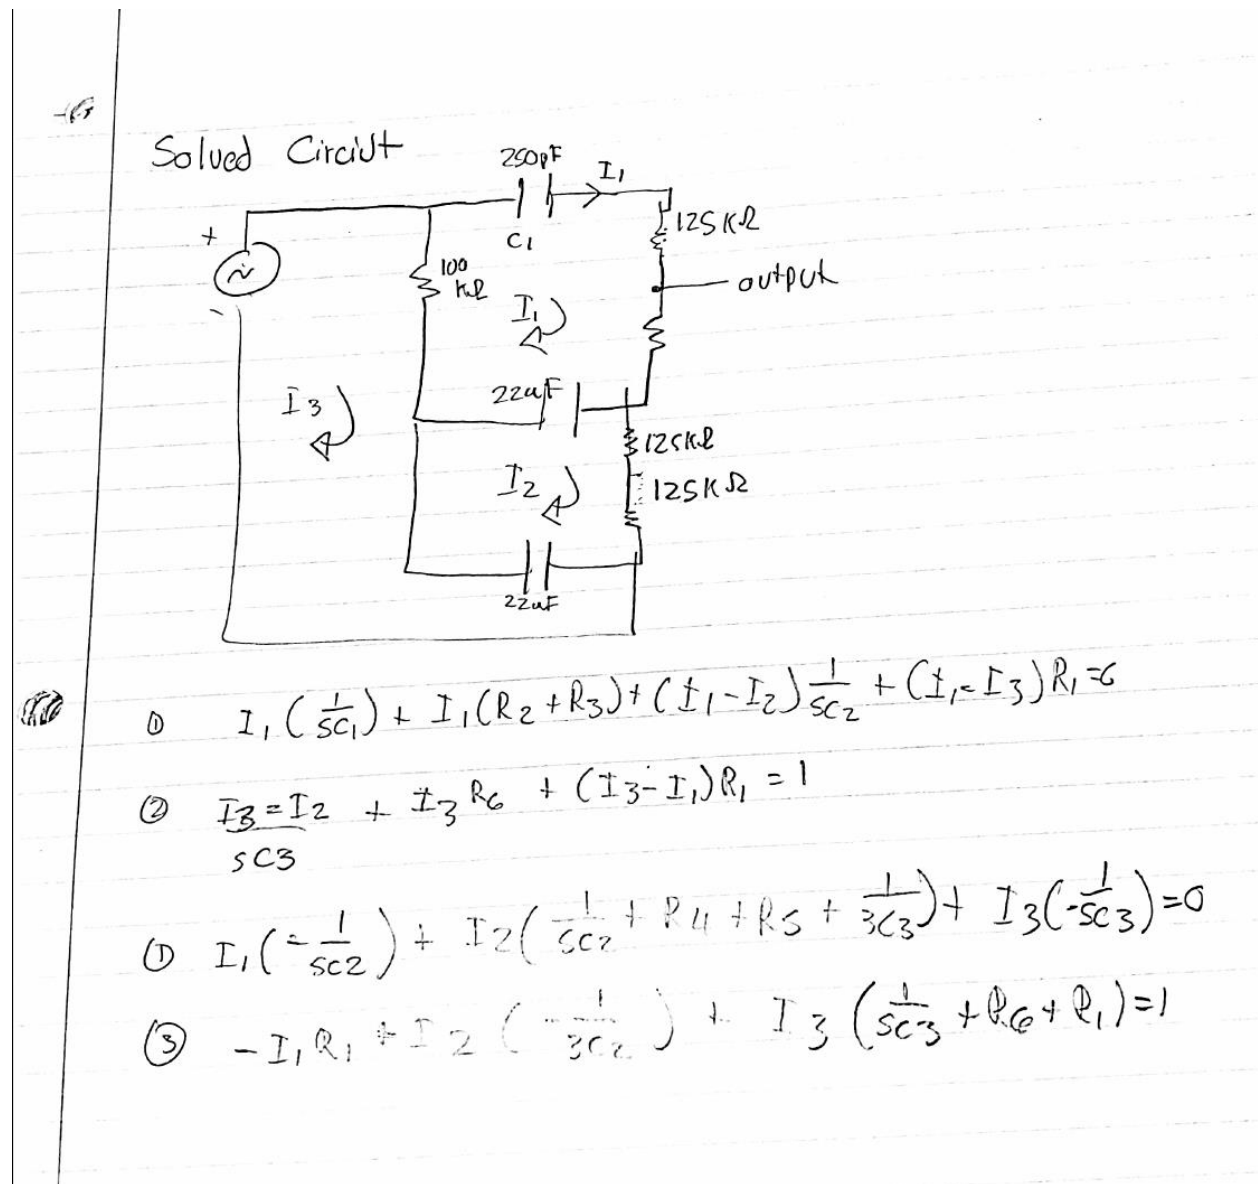 Solved Circiut
250pF
I₁
C₁
125KΩ
+
~
100
KΩ
output
I₁
-
22uF
I3
125KΩ
I2
125KΩ
22uF
① I₁(1/SC₁) + I₁(R2+R3)+(I₁-I2)1/SC2 + (I₁-I3)R₁=0
② I3=I2/SC3 + I3R6 + (I3-I₁)R₁ = 1
① I₁(-1/SC2) + I2(1/SC2 + R4 +R5 + 1/3C3)+ I3(-1/SC3)=0
③ -I₁R₁ + I2(-1/3C2) + I3(1/SC3 +R6+R₁)=1